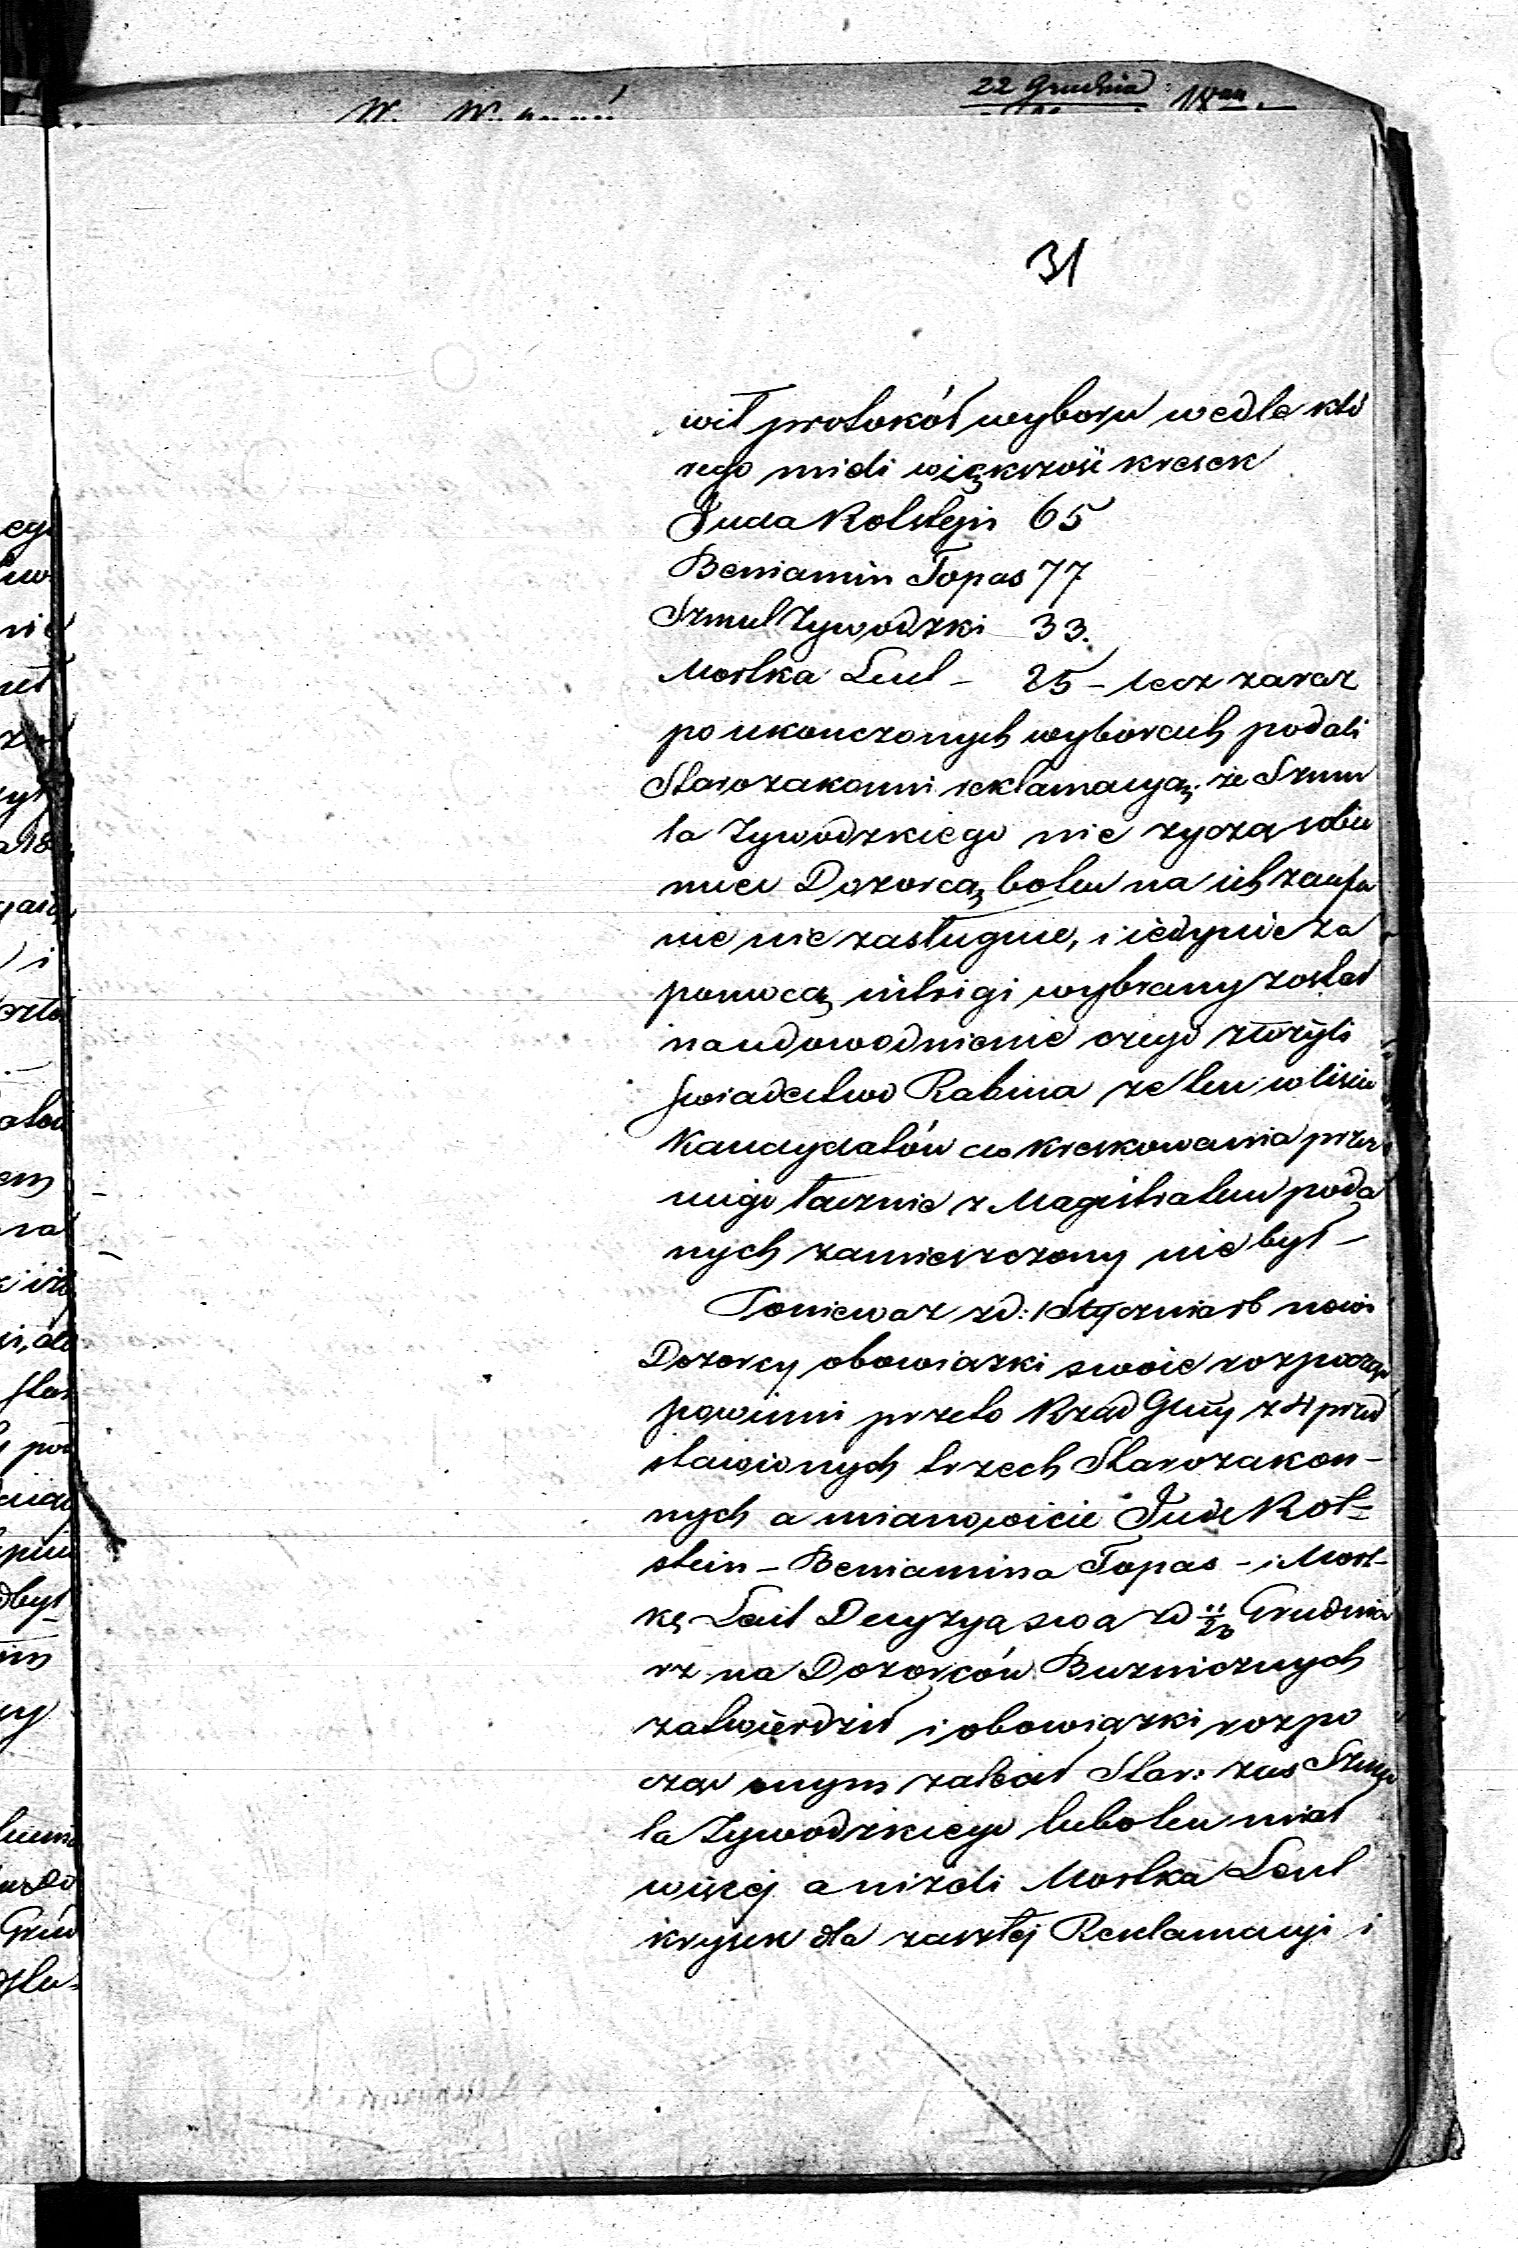 22 Grudnia 18
31
wił protokół wyboru wedle któ
rego mieli większość kresek
Juda Rotsztejn 65
Beniamin Topas 77
Szmul Zywodzki 33.
Moszka Leul - 25 - lecz zaraz
po ukonczonych wyborach podali
Starozakonni reklamacyą, że Szmu
la Zywodzkiego nie zyczą sobie
mieć Dozorcą, boten na ich zaufa
nie nie zasługuie, i iedynie za
pomocą intrigi wybrany został
na udowodnienie czego złożyli
swiadectwo Rabina ze ten w liście
Kandydatów do kreskowania przez
niego łacznie z Magistratem poda
nych zamieszczony nie był -
Poniewaz zd: 1 Stycznia rb nowi
Dozorcy obowiązki swoie rozpocząć
powinni przeto Rząd Gluy z 4 przed
stawionych trzech Starozakon-
nych a mianowicie Jude Rot=
stein - Beniamina Topas - i Mosz-
kę Lail Decyzyą swą zd 11/23 Grudnia
rz na Dozorców Buzniczych
zatwierdził i obowiązki rozpo
cząć onym zalecał Star: zas Szmu
la Zywodzkiego lubo ten miał
więcej aniżeli Moszka Leul
krysek dla zaszłej Reklamacyi i